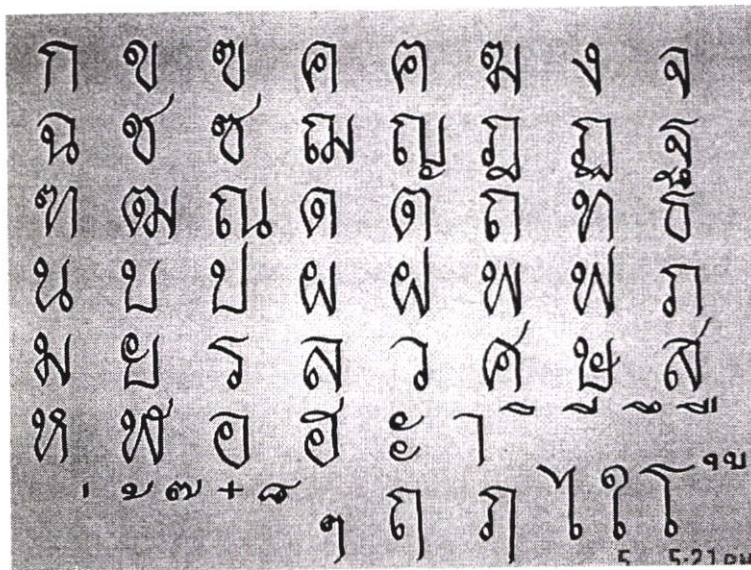 ก ข ฃ ค ฅ ฆ ง จ
ฉ ช ซ ฌ ญ ฎ ฏ ฐ
ฑ ฒ ณ ด ต ถ ท ธ
น บ ป ผ ฝ พ ฟ ภ
ม ย ร ล ว ศ ษ ส
ห ฬ อ ฮ ะ า ิ ี ึ ื
่ ้ ๊ ๋ ็ ๆ ฤ ฦ ไ ใ โ